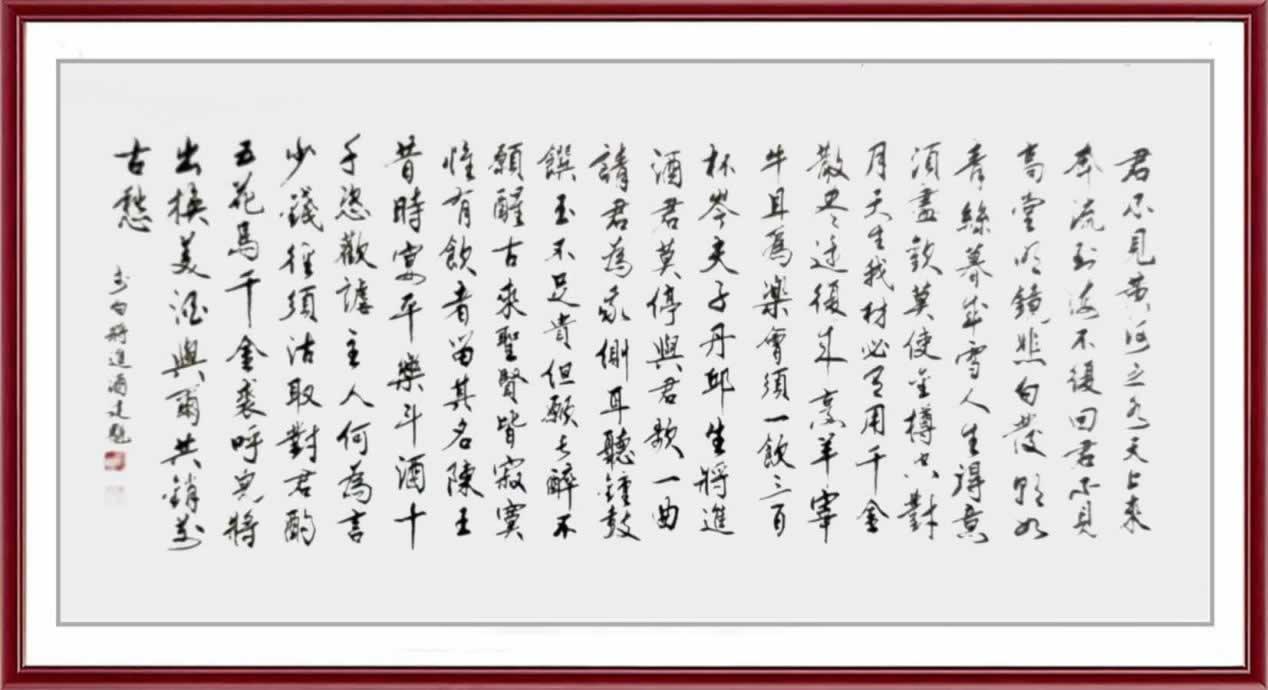 君不見黄河之水天上来
奔流到海不復回君不見
高堂明鏡悲白发朝如
青絲暮成雪人生得意
須盡歡莫使金樽空對
月天生我材必有用千金
散尽还復来烹羊宰
牛且為樂會須一飲三百
杯岑夫子丹邱生將進
酒君莫停與君歌一曲
請君為我側耳聽鐘鼓
饌玉不足貴但願长醉不
願醒古來聖賢皆寂寞
惟有飲者留其名陳王
昔時宴平樂斗酒十
千恣歡謔主人何為言
少錢徑須沽取對君酌
五花馬千金裘呼兒將
出換美酒與爾共銷万
古愁
李白將進酒